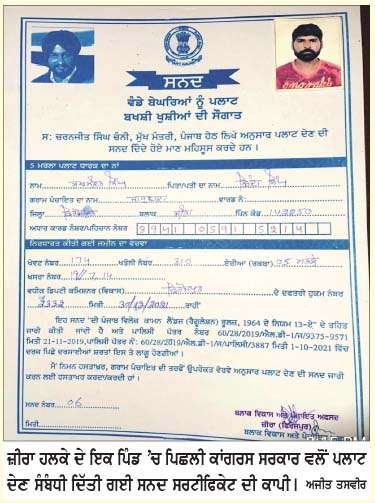 ਸਨਦ
ਵੰਡੇ ਬੇਘਰਿਆਂ ਨੂੰ ਪਲਾਟ
ਬਖਸ਼ੀ ਖੁਸ਼ੀਆਂ ਦੀ ਸੌਗਾਤ
ਸ: ਚਰਨਜੀਤ ਸਿੰਘ ਚੰਨੀ, ਮੁੱਖ ਮੰਤਰੀ, ਪੰਜਾਬ ਹੇਠ ਲਿਖੇ ਅਨੁਸਾਰ ਪਲਾਟ ਦੇਣ ਦੀ
ਸਨਦ ਦਿੰਦੇ ਹੋਏ ਮਾਣ ਮਹਿਸੂਸ ਕਰਦੇ ਹਨ।
5 ਮਰਲਾ ਪਲਾਟ ਧਾਰਕ ਦਾ ਨਾਂ
ਨਾਮ ਸਿੰਘ ਪਿਤਾ/ਪਤੀ ਦਾ ਨਾਮ ਸਿੰਘ
ਗ੍ਰਾਮ ਪੰਚਾਇਤ ਦਾ ਨਾਮ ਵਾਰਡ ਨੰ:
ਜ਼ਿਲ੍ਹਾ ਬਲਾਕ ਜ਼ੀਰਾ ਪਿੰਨ ਕੋਡ
ਆਧਾਰ ਕਾਰਡ ਨੰਬਰ/ਪਹਿਚਾਨ ਨੰਬਰ
ਨਿਰਧਾਰਤ ਕੀਤੀ ਗਈ ਜ਼ਮੀਨ ਦਾ ਵੇਰਵਾ
ਖੇਵਟ ਨੰਬਰ 174 ਖਤੌਨੀ ਨੰਬਰ 210 ਏਰੀਆ (ਰਕਬਾ) 05 ਮਰਲੇ
ਖਸਰਾ ਨੰਬਰ
ਵਧੀਕ ਡਿਪਟੀ ਕਮਿਸ਼ਨਰ (ਵਿਕਾਸ) ਦੇ ਦਫਤਰੀ ਹੁਕਮ ਨੰਬਰ
ਮਿਤੀ 30/12/2021 ਰਾਹੀਂ
ਇਹ ਸਨਦ "ਦੀ ਪੰਜਾਬ ਵਿਲੇਜ ਕਾਮਨ ਲੈਂਡਜ਼ (ਰੈਗੂਲੇਸ਼ਨ) ਰੂਲਜ਼, 1964 ਦੇ ਨਿਯਮ 13-ਏ" ਦੇ ਤਹਿਤ
ਜਾਰੀ ਕੀਤੀ ਜਾਂਦੀ ਹੈ ਅਤੇ ਪਾਲਿਸੀ ਪੱਤਰ ਨੰਬਰ 60/28/2019/ਐਲ.ਡੀ-1/ਜ/9375-9571
ਮਿਤੀ 21-11-2019, ਪਾਲਿਸੀ ਪੱਤਰ ਨੰ: 60/28/2019/ਐਲ.ਡੀ-1/ਜ/ਪਾਲਿਸੀ/3887 ਮਿਤੀ 1-10-2021 ਵਿੱਚ
ਦਰਜ ਪਿੱਛੇ ਦਰਸਾਈਆਂ ਸ਼ਰਤਾਂ ਇਸ ਤੇ ਲਾਗੂ ਹੋਣਗੀਆਂ।
ਮੈਂ ਨਿਮਨ ਹਸਤਾਖਰ, ਗਰਾਮ ਪੰਚਾਇਤ ਦੀ ਤਰਫੋਂ ਉਪਰੋਕਤ ਵੇਰਵੇ ਅਨੁਸਾਰ ਪਲਾਟ ਅਲਾਟਮੈਂਟ ਦੀ ਸਨਦ ਜਾਰੀ
ਕਰਨ ਲਈ ਹਸਤਾਖਰ ਕਰਦਾ/ਕਰਦੀ ਹਾਂ।
ਸਨਦ ਨੰਬਰ 06
ਮਿਤੀ
ਬਲਾਕ ਵਿਕਾਸ ਅਤੇ ਪੰਚਾਇਤ ਅਫਸਰ
ਜ਼ੀਰਾ (ਫਿਰੋਜ਼ਪੁਰ)
ਬਲਾਕ ਵਿਕਾਸ ਅਤੇ
ਜ਼ੀਰਾ ਹਲਕੇ ਦੇ ਇਕ ਪਿੰਡ 'ਚ ਪਿਛਲੀ ਕਾਂਗਰਸ ਸਰਕਾਰ ਵਲੋਂ ਪਲਾਟ
ਦੇਣ ਸੰਬੰਧੀ ਦਿੱਤੀ ਗਈ ਸਨਦ ਸਰਟੀਫਿਕੇਟ ਦੀ ਕਾਪੀ। ਅਜੀਤ ਤਸਵੀਰ